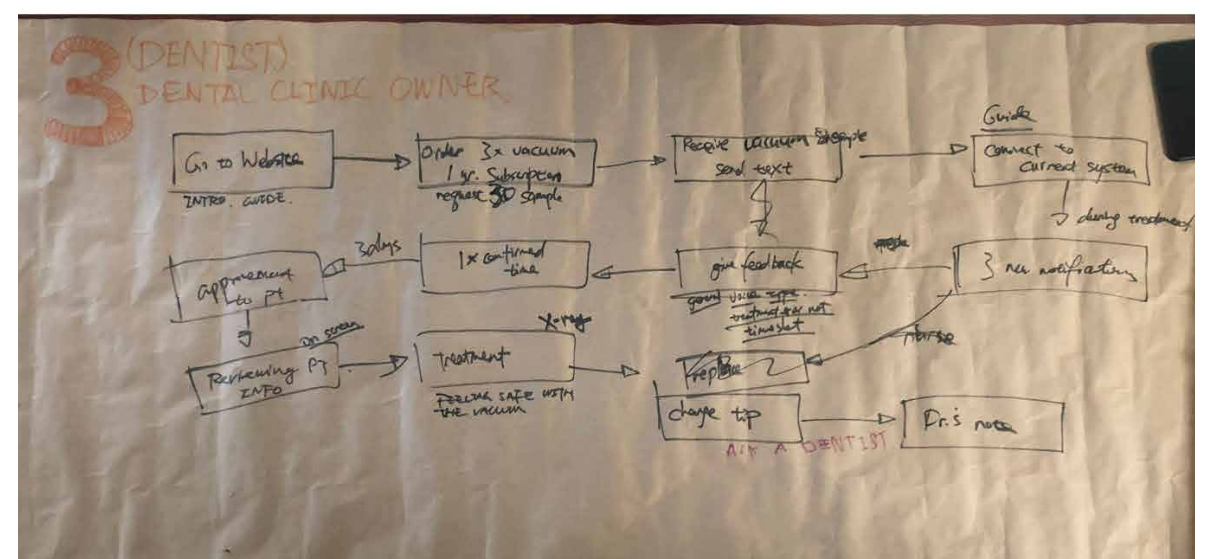 3 (DENTIST)
DENTAL CLINIC OWNER.
Go to Website
INTRO. GUIDE.
Order 3x vacuum
1 yr. Subscription
request 30 sample
Receive vacuum sample
send text
Guide
Connect to
current system
during treatment
3 new notifications
give feedback
type
treatment fear not
time slot
1x confirmed
time
3 days
to pt
on screen
Reviewing PT
INFO
X-ray
treatment
FEELING SAFE WITH
THE VACUUM
nurse
replace
change tip
ASK A DENTIST
Dr.'s note